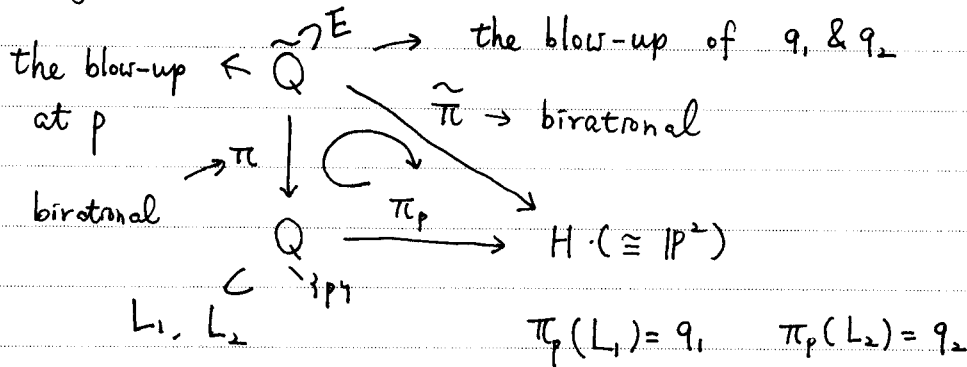 E
the blow-up ← Q̃ → the blow-up of q₁ & q₂
at p
π̃ → birational
π
birational
π_p
Q → H·(≅ ℙ²)
\{p}
L₁, L₂ ⊂
π_p(L₁) = q₁ π_p(L₂) = q₂